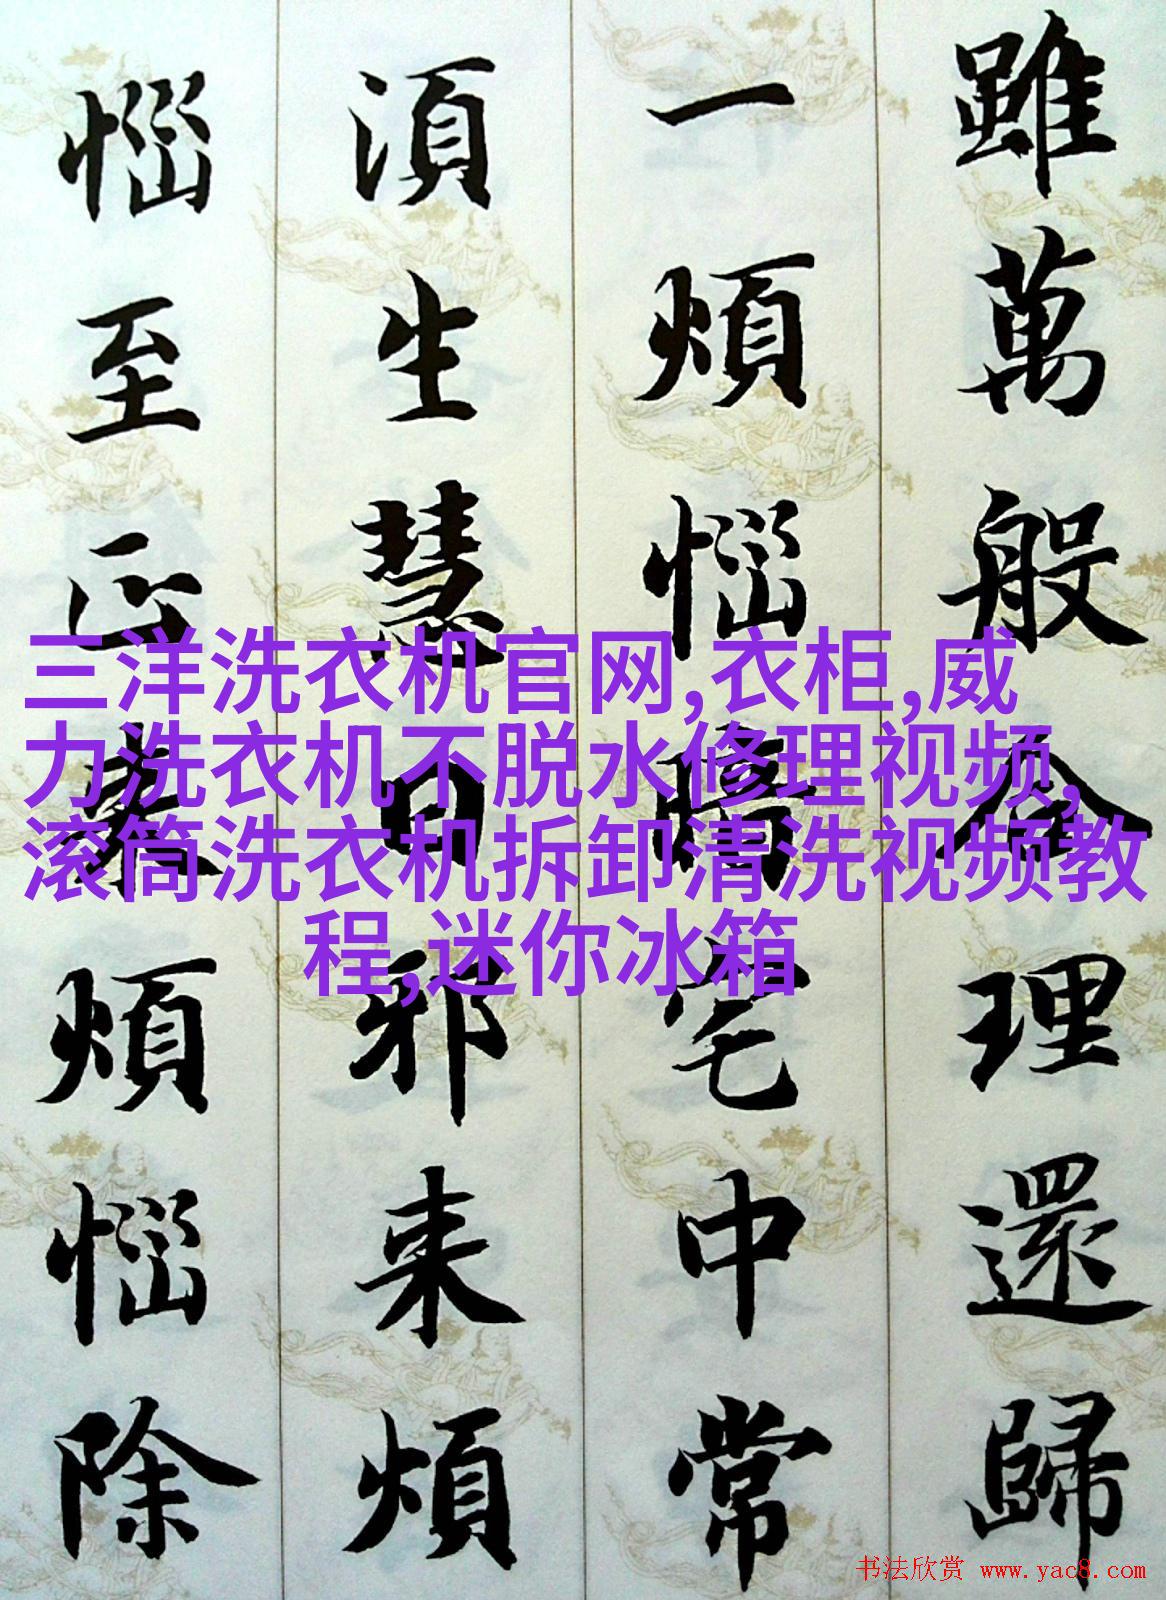 雖萬般合理還歸
一煩惱暗宅中常
湏生慧日邪来煩
惱至正来煩惱除
三洋洗衣机官网,衣柜,威
力洗衣机不脱水修理视频,
滚筒洗衣机拆卸清洗视频教
程,迷你冰箱
书法欣赏 www.yac8.com